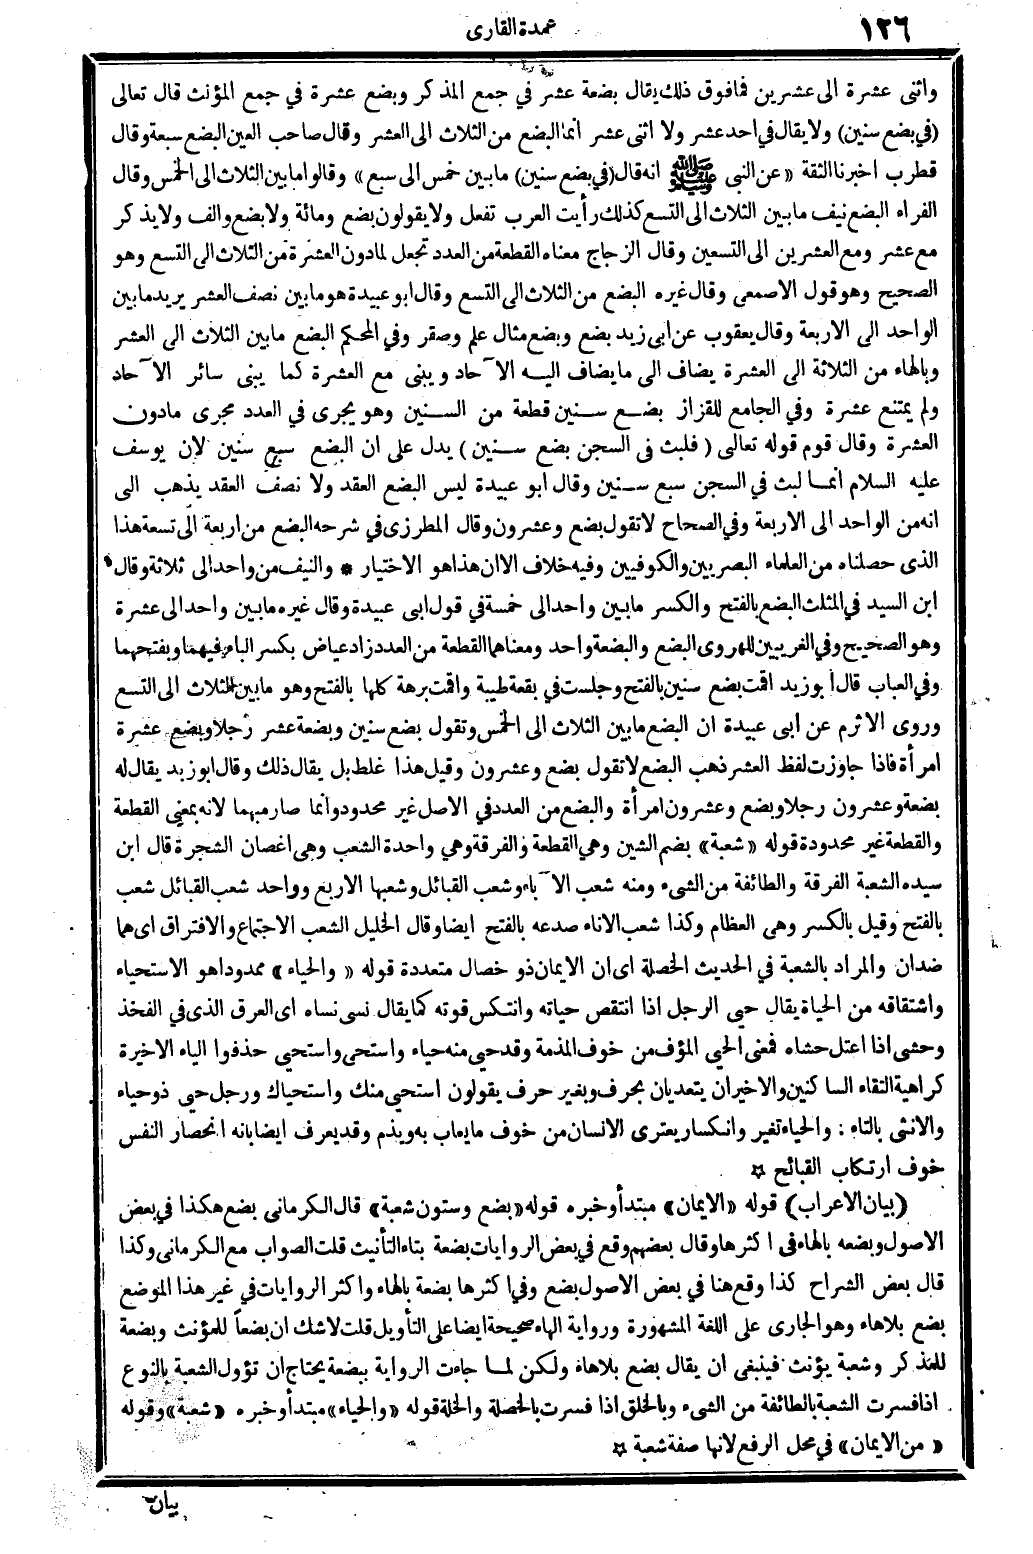 ١٢٦
عمدة القارى
واثنى عشرة الى عشرين فمافوق ذلك يقال بضعة عشر في جمع المذكر وبضع عشرة في جمع المؤنث قال تعالى
(في بضع سنين) ولا يقال في احد عشر ولا اثنى عشر أنما البضع من الثلاث الى العشر وقال صاحب العين البضع سبعة وقال
قطرب اخبرنا الثقة «عن النبى ﷺ انه قال (في بضع سنين) مابين خمس الى سبع» وقالوا مابين الثلاث الى الخمس وقال
الفراء البضع نيف مابين الثلاث الى التسع كذلك رأيت العرب تفعل ولا يقولون بضع ومائة ولا بضع والف ولا يذكر
مع عشر ومع العشرين الى التسعين وقال الزجاج معناه القطعة من العدد تجعل لمادون العشرة من الثلاث الى التسع وهو
الصحيح وهو قول الاصمعى وقال غيره البضع من الثلاث الى التسع وقال ابو عبيدة هو مابين نصف العشر يريد مابين
الواحد الى الاربعة وقال يعقوب عن ابى زيد بضع وبضع مثال علم وصقر وفي المحكم البضع مابين الثلاث الى العشر
وبالهاء من الثلاثة الى العشرة يضاف الى مايضاف اليه الآحاد ويبنى مع العشرة كما يبنى سائر الآحاد
ولم يمتنع عشرة وفي الجامع للقزاز بضع سنين قطعة من السنين وهو يجرى في العدد مجرى مادون
العشرة وقال قوم قوله تعالى (فلبث فى السجن بضع سنين) يدل على ان البضع سبع سنين لان يوسف
عليه السلام أنما لبث في السجن سبع سنين وقال ابو عبيدة ليس البضع العقد ولا نصف العقد يذهب الى
انه من الواحد الى الاربعة وفي الصحاح لاتقول بضع وعشرون وقال المطرزى في شرحه البضع من اربعة الى تسعة هذا
الذى حصلناه من العلماء البصريين والكوفيين وفيه خلاف الا ان هذا هو الاختيار * والنيف من واحد الى ثلاثة وقال
ابن السيد في المثلث البضع بالفتح والكسر مابين واحد الى خمسة في قول ابى عبيدة وقال غيره مابين واحد الى عشرة
وهو الصحيح وفي الغريبين للهروى البضع والبضعة واحد ومعناهما القطعة من العدد زاد عياض بكسر الباء فيهما وبفتحهما
وفي العباب قال أبو زيد اقمت بضع سنين بالفتح وجلست في بقعة طيبة واقمت برهة كلها بالفتح وهو مابين الثلاث الى التسع
وروى الاثرم عن ابى عبيدة ان البضع مابين الثلاث الى الخمس وتقول بضع سنين وبضعة عشر رجلا وبضع عشرة
امرأة فاذا جاوزت لفظ العشر ذهب البضع لاتقول بضع وعشرون وقيل هذا غلط بل يقال ذلك وقال ابو زيد يقال له
بضعة وعشرون رجلا وبضع وعشرون امرأة والبضع من العدد في الاصل غير محدود وأنما صار مبهما لانه بمعنى القطعة
والقطعة غير محدودة قوله «شعبة» بضم الشين وهي القطعة والفرقة وهي واحدة الشعب وهى اغصان الشجرة قال ابن
سيده الشعبة الفرقة والطائفة من الشىء ومنه شعب الآباء وشعب القبائل وشعبها الاربع وواحد شعب القبائل شعب
بالفتح وقيل بالكسر وهى العظام وكذا شعب الاناء صدعه بالفتح ايضا وقال الخليل الشعب الاجتماع والافتراق اى هما
ضدان والمراد بالشعبة في الحديث الخصلة اى ان الايمان ذو خصال متعددة قوله «والحياء» ممدودا هو الاستحياء
واشتقاقه من الحياة يقال حيى الرجل اذا انتقص حياته وانتكس قوته كما يقال نسى نساه اى العرق الذى في الفخذ
وحشى اذا اعتل حشاه فمعنى الحيى المؤف من خوف المذمة وقد حيى منه حياء واستحى واستحيى حذفوا الياء الاخيرة
كراهية التقاء الساكنين والاخيران يتعديان بحرف وبغير حرف يقولون استحيى منك واستحياك ورجل حيى ذو حياء
والانثى بالتاء : والحياء تغير وانكسار يعترى الانسان من خوف مايعاب به ويذم وقد يعرف ايضا بانه انحصار النفس
خوف ارتكاب القبائح ☆
(بيان الاعراب) قوله «الايمان» مبتدأ وخبره قوله «بضع وستون شعبة» قال الكرمانى بضع هكذا في بعض
الاصول وبضعه بالهاء فى اكثرها وقال بعضهم وقع في بعض الروايات بضعة بتاء التأنيث قلت الصواب مع الكرمانى وكذا
قال بعض الشراح كذا وقع هنا في بعض الاصول بضع وفي اكثرها بضعة بالهاء واكثر الروايات في غير هذا الموضع
بضع بلاهاء وهو الجارى على اللغة المشهورة ورواية الهاء صحيحة ايضا على التأويل قلت لاشك ان بضعاً للمؤنث وبضعة
للمذكر وشعبة يؤنث فينبغى ان يقال بضع بلاهاء ولكن لما جاءت الرواية ببضعة يحتاج ان تؤول الشعبة بالنوع
اذا فسرت الشعبة بالطائفة من الشىء وبالخلق اذا فسرت بالخصلة والخلة قوله «والحياء» مبتدأ وخبره «شعبة» وقوله
«من الايمان» في محل الرفع لانها صفة شعبة ☆
بيان